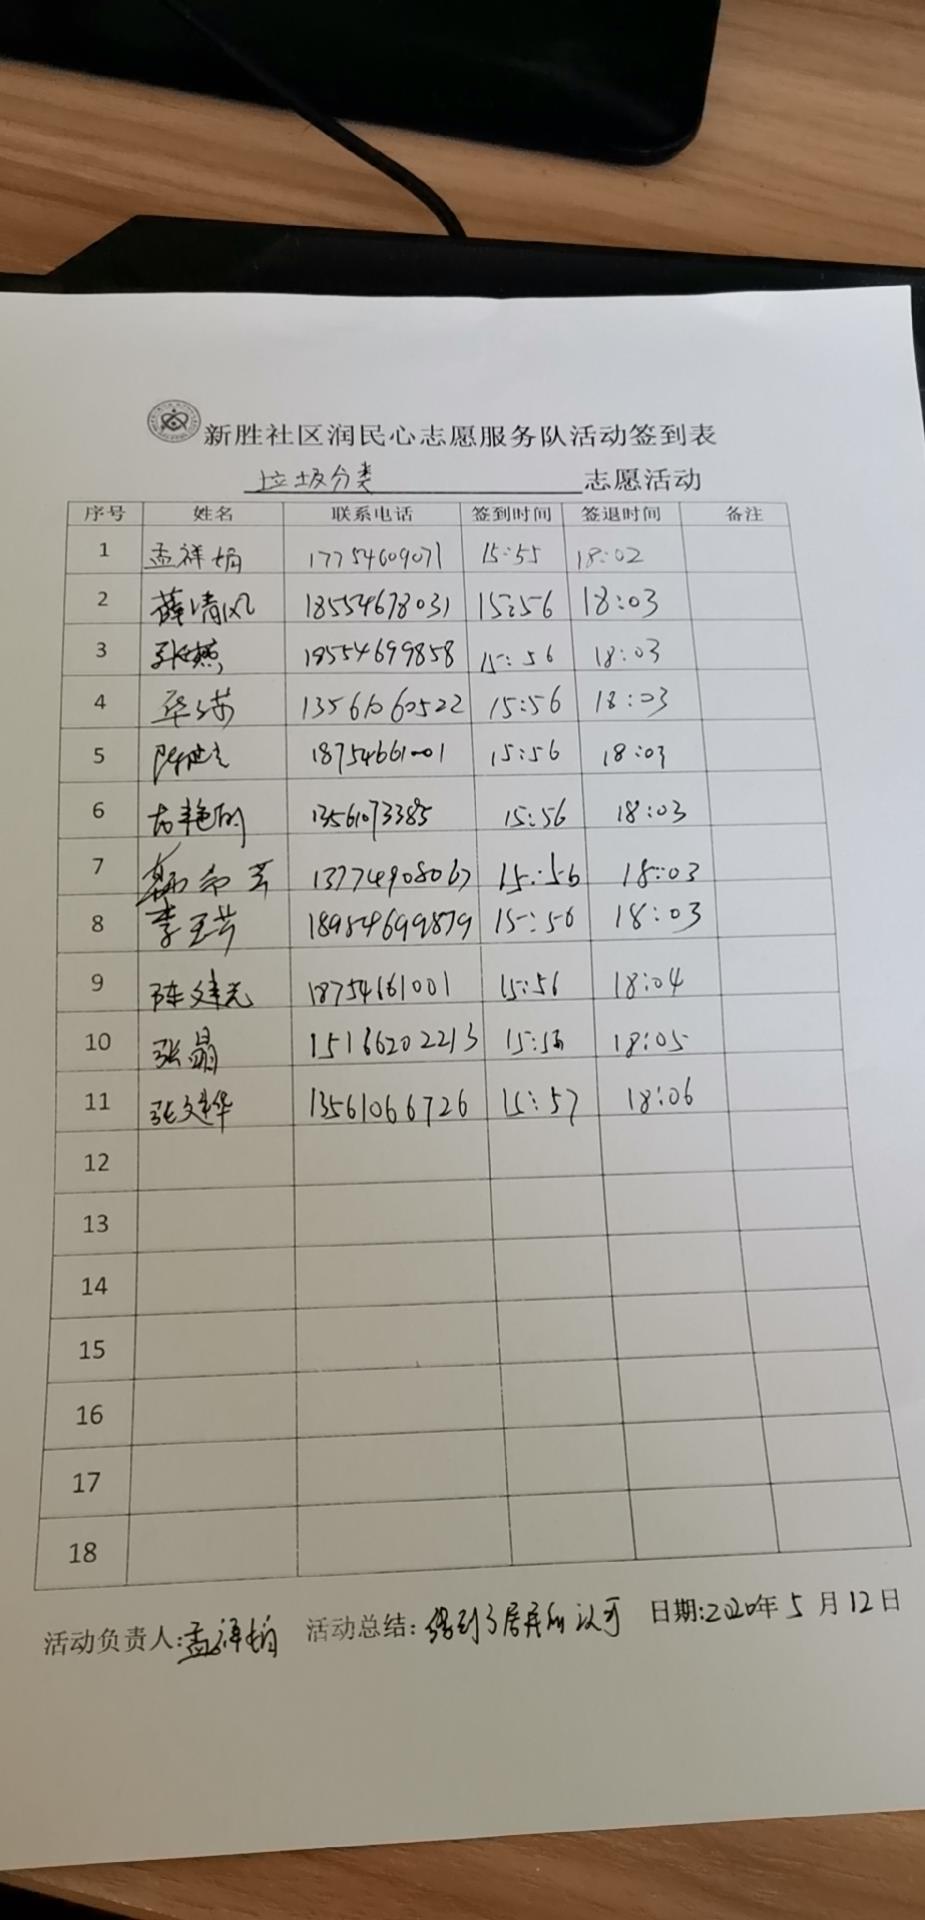 新胜社区润民心志愿服务队活动签到表
垃圾分类 志愿活动
序号 姓名 联系电话 签到时间 签退时间 备注
1 孟祥娟 17754609071 15:55 18:02
2 薛清风 18554678031 15:56 18:03
3 张燕 18554699858 15:56 18:03
4 13561060522 15:56 18:03
5 18754661001 15:56 18:03
6 13561073385 15:56 18:03
7 13774908067 15:56 18:03
8 李玉芳 18954699879 15:56 18:03
9 陈建光 18754661001 15:56 18:04
10 张晶 15166202213 15:56 18:05
11 张建华 13561066726 15:57 18:06
12
13
14
15
16
17
18
活动负责人:孟祥娟 活动总结:得到了居民的认可 日期:2020年5月12日